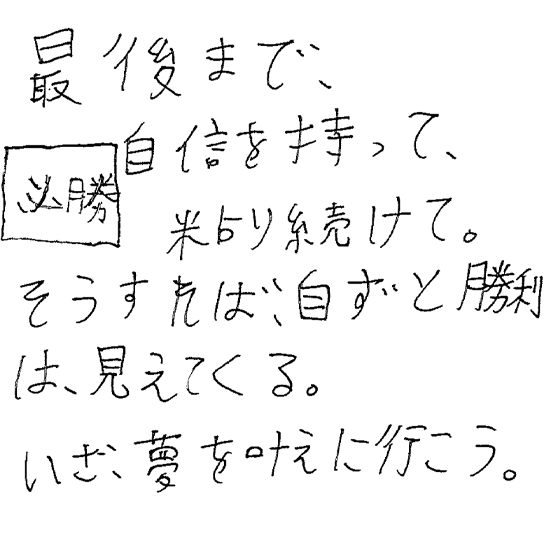 最後まで、
自信を持って、
必勝
粘り続けて。
そうすれば、自ずと勝利
は、見えてくる。
いざ、夢を叶えに行こう。